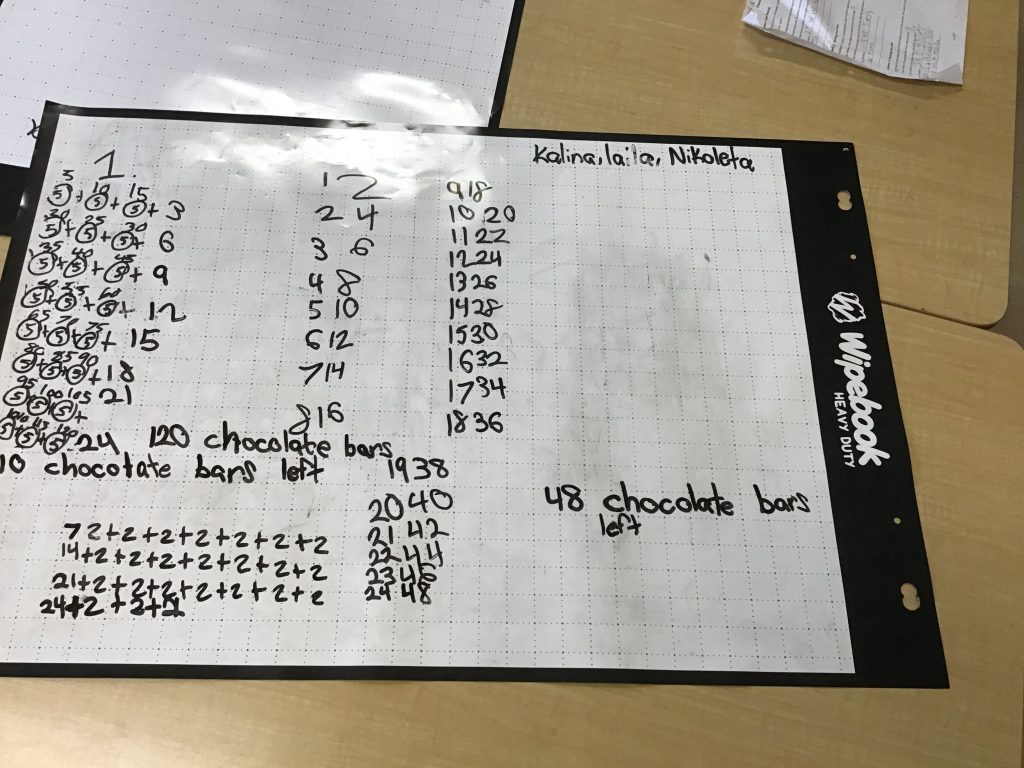 Kalina, laila, Nikoleta
1.
5 10 15
5 + 5 + 5 + 3
20 25 30
5 + 5 + 5 + 6
35 40 45
5 + 5 + 5 + 9
5 + 5 + 5 + 12
65 70 75
5 + 5 + 5 + 15
80 85 90
5 + 5 + 5 + 18
95 100 105
5 5 5 + 21
5 + 5 + 5 24
120 chocolate bars
10 chocolate bars left
7 2+2+2+2+2+2+2
14+2+2+2+2+2+2+2
21+2+2+2+2+2+2+2
24+2+2+2
1 2
2 4
3 6
4 8
5 10
6 12
7 14
8 16
9 18
10 20
11 22
12 24
13 26
14 28
15 30
16 32
17 34
18 36
19 38
20 40
21 42
22 44
23 46
24 48
48 chocolate bars
left
Wipebook
HEAVY DUTY